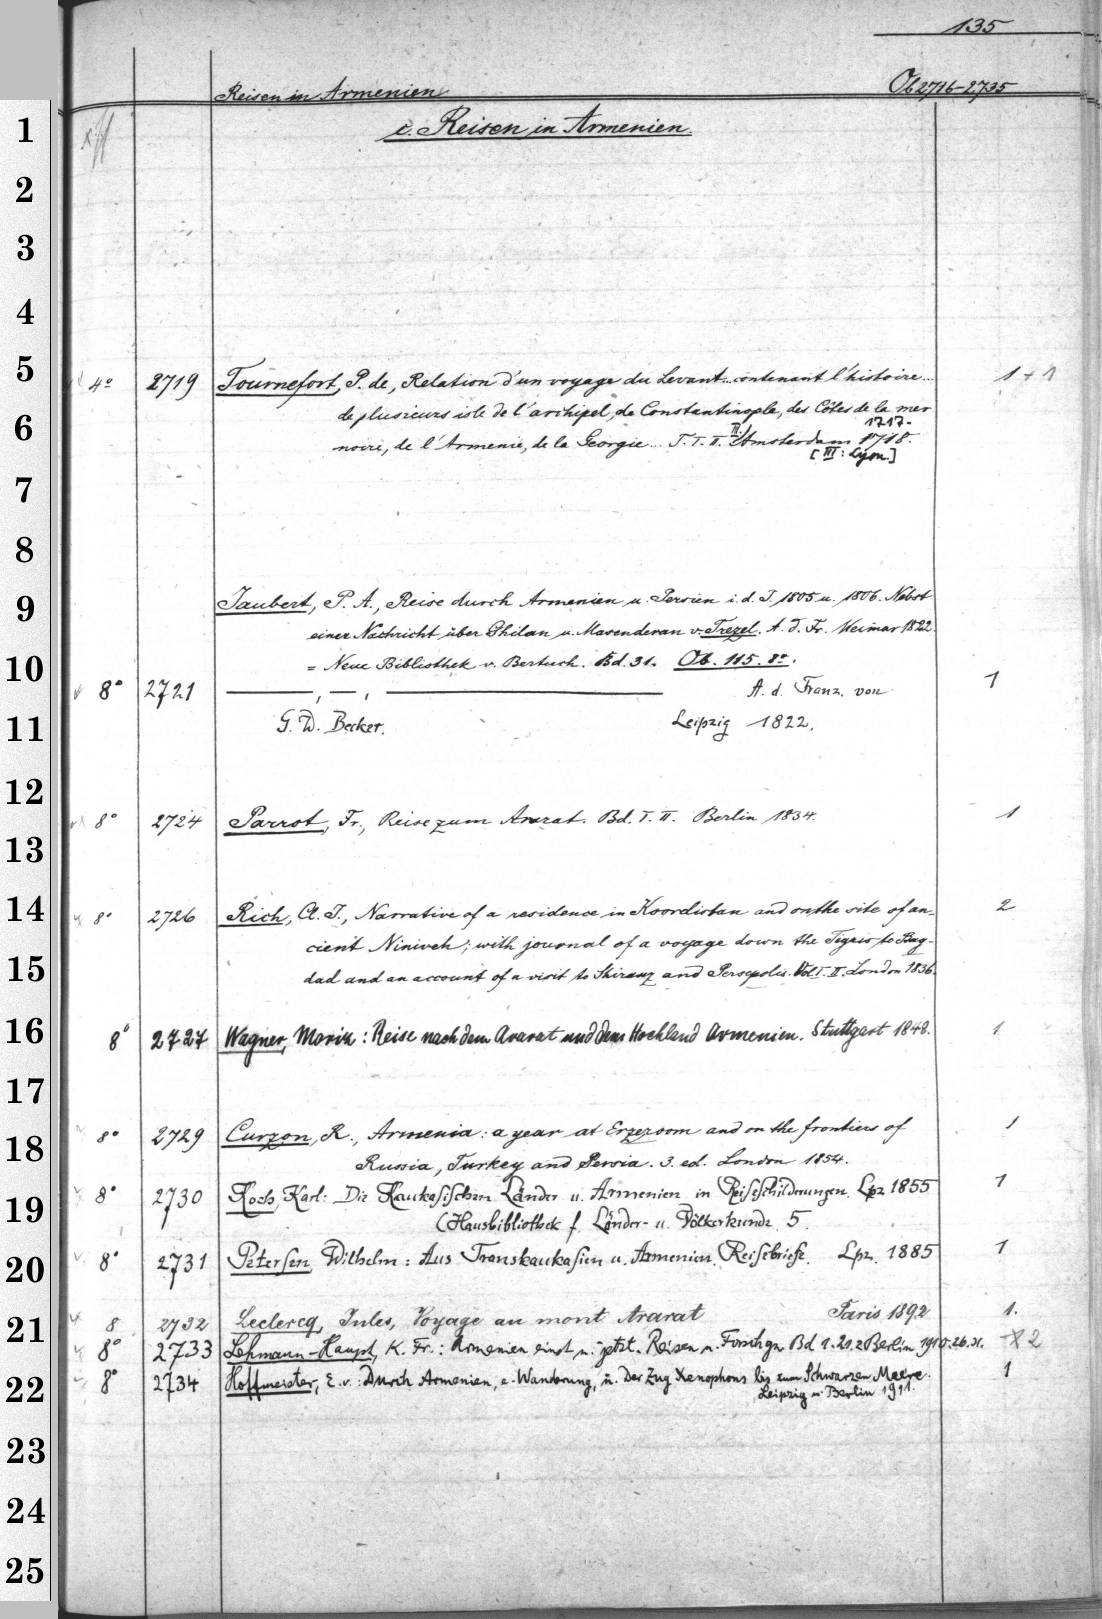 135
Reisen in Armenien Ob 2716-2735
1
c. Reisen in Armenien.
2
3
4
5
4° 2719 Tournefort, P. de, Relation d'un voyage du Levant... contenant l'histoire... 1 + 1
de plusieurs isle de l'archipel, de Constantinople, des Côtes de la mer
6
1717-
noire, de l'Armenie, de la Georgie... T. I. II. III. Amsterdam 1718.
[III: Lyon.]
7
8
9
Jaubert, P. A., Reise durch Armenien u. Persien i. d. J. 1805 u. 1806. Nebst
einer Nachricht über Ghilan u. Masenderan v. Trezel. A. d. Fr. Weimar 1822.
10
= Neue Bibliothek v. Bertuch. Bd. 31. Ob. 115. 8°.
8° 2721 ———, —, ——————— A. d. Franz. von 1
11
G. W. Becker. Leipzig 1822.
12
8° 2724 Parrot, Fr., Reise zum Ararat. Bd. I. II. Berlin 1834. 1
13
14
8° 2726 Rich, Cl. J., Narrative of a residence in Koordistan and on the site of an- 2
cient Niniveh; with journal of a voyage down the Tigris to Bag-
15
dad and an account of a visit to Shirauz and Persepolis. Vol. I. II. London 1836.
16
8° 2727 Wagner, Moriz: Reise nach dem Ararat und dem Hochland Armenien. Stuttgart 1848. 1
17
18
8° 2729 Curzon, R., Armenia: a year at Erzeroom and on the frontiers of 1
Russia, Turkey and Persia. 3. ed. London 1854.
19
8° 2730 Koch, Karl: Die Kaukasischen Länder u. Armenien in Reiseschilderungen. Lpz 1855 1
(Hausbibliothek f. Länder- u. Völkerkunde 5.
20
8° 2731 Petersen, Wilhelm: Aus Transkaukasien u. Armenien. Reisebriefe. Lpz. 1885 1
21
8 2732 Leclercq, Jules, Voyage au mont Ararat Paris 1892 1.
8° 2733 Lehmann-Haupt, K. Fr.: Armenien einst u. jetzt. Reisen u. Forschgn Bd 1. 2,1.2 Berlin 1910. 26. 31. 2
22
8° 2734 Hoffmeister, E. v.: Durch Armenien, e. Wanderung, u. Der Zug Xenophons bis zum Schwarzen Meere. 1
Leipzig u. Berlin 1911.
23
24
25